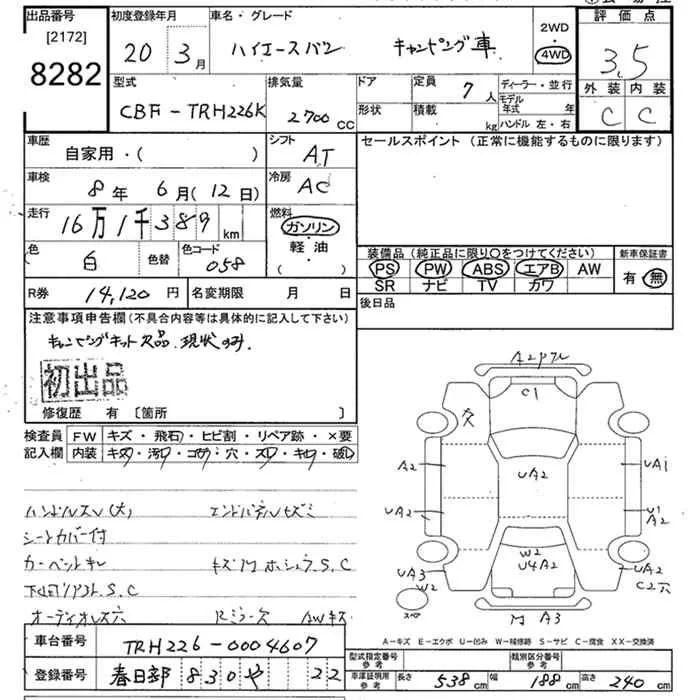 出品番号 [2172] 8282
初度登録年月 20年 3月
車名・グレード ハイエースバン キャンピング車
2WD・4WD
評価点 3.5
外装 内装
C C
型式 CBF-TRH226K
排気量 2700 cc
ドア 形状
定員 7人
積載 kg
ディーラー・並行
モデル年式 年
ハンドル 左・右
車歴 自家用・( )
シフト AT
セールスポイント (正常に機能するものに限ります)
車検 8年 6月(12日)
冷房 AC
走行 16万1千389 km
燃料 ガソリン・軽油 ( ・ )
色 白 色替 色コード 058
装備品 (純正品に限り○をつけてください) 新車保証書
PS PW ABS エアB AW 有・無
SR ナビ TV カワ
R券 14,120円 名変期限 月 日
後日品
注意事項申告欄 (不具合内容等は具体的に記入して下さい)
キャンピングキット欠品.現状のみ.
初出品
修復歴 有 〔箇所 〕
検査員記入欄
FW キズ・飛石・ヒビ割・リペア跡・×要
内装 キズ・汚れ・コゲ・穴・スレ・キレ・破れ
ハンドルスレ(大) エンドパネルヒズミ
シートカバー付
カーペットキレ
下回りリアフトS.C
オーディオレス穴 Rミラー欠 AWキズ
A2
C1
欠
A2
UA2
UA1
UA2
U1
A2
W2
U4A2
UA3
W2
UA2
C2穴
スペア
A3
A-キズ E-エクボ U-凹み W-補修跡 S-サビ C-腐食 XX-交換済
車台番号 TRH226-0004607
登録番号 春日部 830 や 22
型式指定番号 参考 類別区分番号 参考
車庫証明用 参考 長さ 538 cm 幅 188 cm 高さ 240 cm